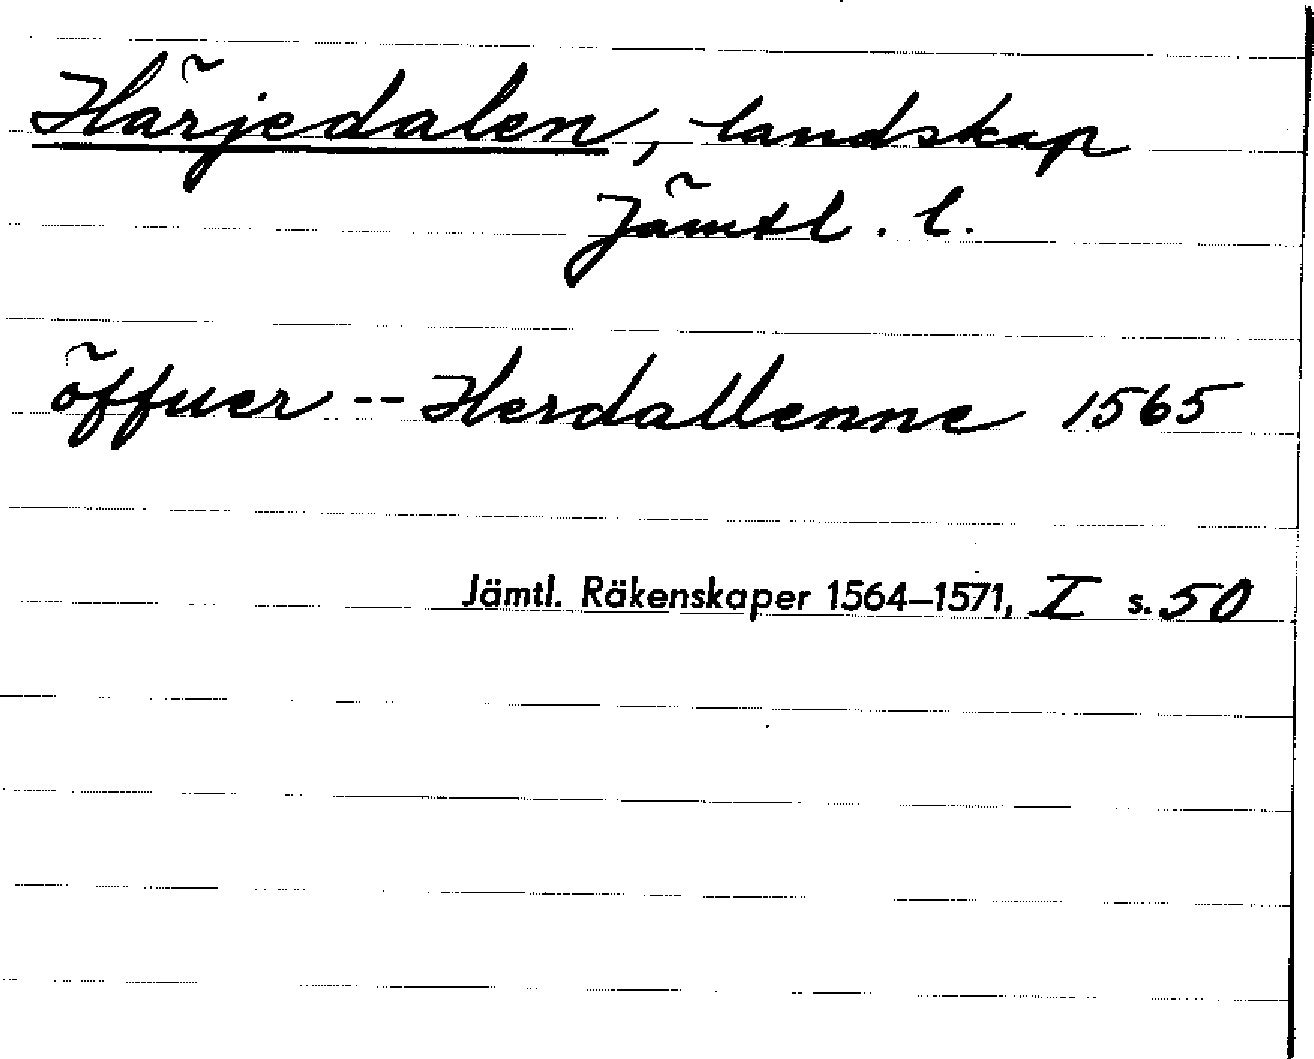 Härjedalen, landskap
Jämtl. l.
öffuer -- Herdallenne 1565
Jämtl. Räkenskaper 1564–1571, I s. 50